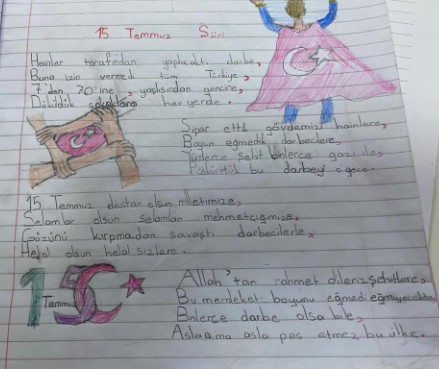 15 Temmuz Şiiri
Hainler tarafından yapılacaktı darbe,
Buna izin vermedi Türkiye,
7'den 70'ine, yaşlısından gencine,
Döküldük sokaklara her yerde.
Siper etti gövdemizi hainlere,
Boyun eğmedik darbecilere,
Yüzlerce şehit binlerce gazi ile,
Püskürttük bu darbeyi o gece.
15 Temmuz destan olsun milletimize,
Selamlar olsun selamlar mehmetçiğimize,
Gözünü kırpmadan savaştı darbecilerle,
Helal olsun helal sizlere.
15
Temmuz
Allah'tan rahmet dileriz şehitlere,
Bu memleket boyunu eğmedi eğmiyecekte,
Binlerce darbe olsa bile,
Asla ama asla pes etmez bu ülke.